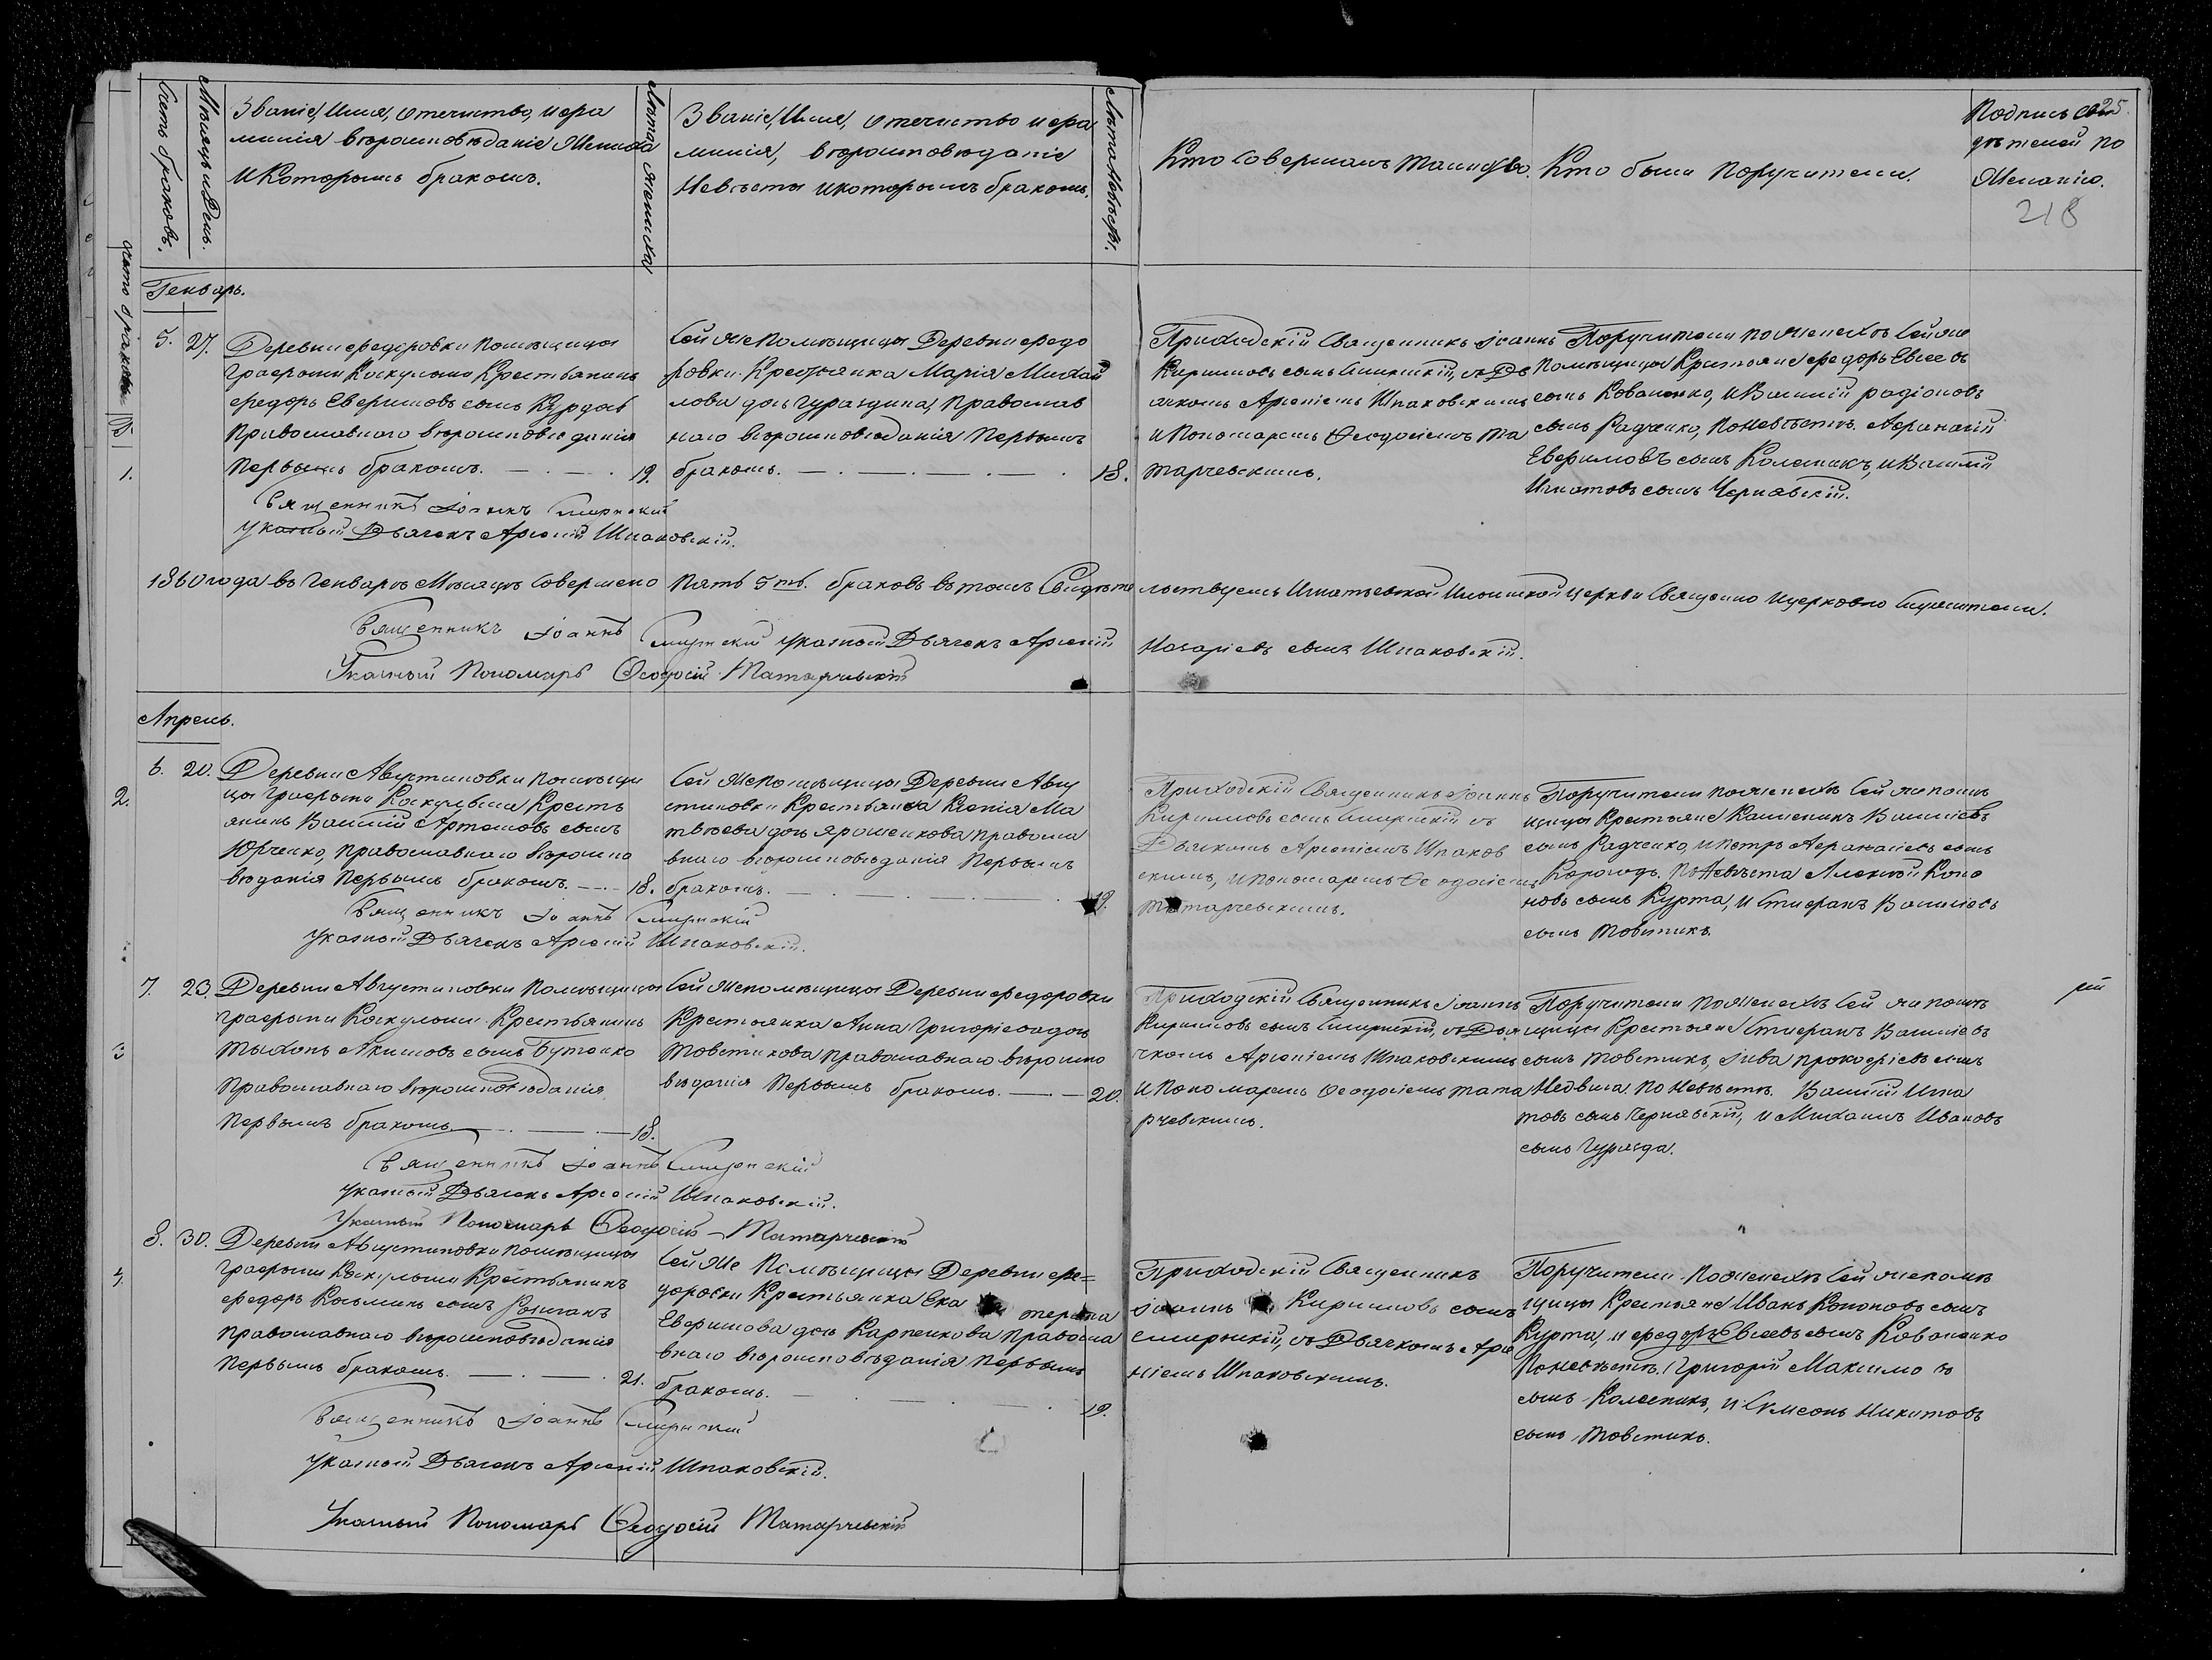 Счетъ браковъ.
Мѣсяцъ и День.
Званіе, Имя, Отечество, и фа
милія вѣроисповѣданіе Жениха
и Которымъ бракомъ.
Лѣта жениха
Званіе, Имя, Отечество и фа
милія, вѣроисповѣданіе
Невѣсты и которымъ бракомъ.
Лѣта Невѣсты.
Кто Совершалъ Таинство.
Кто были Поручители.
Подпись сви
дѣтелей по
Желанію.
25
218
Генварь.
5. 27.
1.
Деревни Федоровки Помѣщицы
Графини Крестьянинъ
Федоръ Евфимовъ сынъ
Православнаго вѣроисповѣданія
Первымъ бракомъ. 19.
Сей же Помѣщицы Деревни Федо
ровки Крестьянка Марія Михай
лова дочь Православ
наго вѣроисповѣданія Первымъ
бракомъ. 18.
Приходскій Священникъ Іоаннъ
Кириловъ сынъ съ Дь
ячкомъ Арсеніемъ Шпаковскимъ
и Пономаремъ Ѳеодосіемъ Та
тарчевскимъ.
Поручители по женихѣ Сей же
Помѣщицы Крестьяне Федоръ Евсеевъ
сынъ Коваленко, и Василій Радіоновъ
сынъ Радченко, по Невѣстѣ Афанасій
Евфимовъ сынъ Колесникъ, и Василій
Игнатовъ сынъ Чернявскій.
Священникъ Іоаннъ
Указный Дьячекъ Арсеній Шпаковскій.
1860 года въ Генварѣ Мѣсяцѣ Совершено Пять 5ть. браковъ въ томъ Свидѣте льствуемъ Церкви Священно и церковно служители.
Священникъ Іоаннъ Указный Дьячекъ Арсеній Назаріевъ сынъ Шпаковскій.
Указный Пономарь Ѳеодосій Татарчевскій
Апрель.
6. 20.
2.
Деревни Августиновки Помѣщи
цы Графини Кресть
янинъ Василій Артемовъ сынъ
Юрченко, Православнаго вѣроиспо
вѣданія Первымъ бракомъ. 18.
Сей же Помѣщицы Деревни Авгу
стиновки Крестьянка Ксенія Ма
твѣева дочь Ярошенкова Правосла
внаго вѣроисповѣданія Первымъ
бракомъ. 19.
Приходскій Священникъ Іоаннъ
Кириловъ сынъ съ
Дьячкомъ Арсеніемъ Шпаков
скимъ, и Пономаремъ Ѳеодосіемъ
Татарчевскимъ.
Поручители по женихѣ Сей же помѣ
щицы Крестьяне Василіевъ
сынъ Радченко, и Петръ Афанасіевъ сынъ
по Невѣстѣ Алексей Коно
новъ сынъ Курта, и Стефанъ Василіевъ
сынъ Товстикъ.
Священникъ Іоаннъ
Указный Дьячекъ Арсеній Шпаковскій.
7. 23.
3
Деревни Августиновки Помѣщицы
Графини Крестьянинъ
Тихонъ Акимовъ сынъ Бутенко
Православнаго вѣроисповѣданія
Первымъ бракомъ 18.
Сей же помѣщицы Деревни Федоровки
Крестьянка Анна Григоріева дочь
Товстикова Православнаго вѣроиспо
вѣданія Первымъ бракомъ. 20.
Приходскій Священникъ Іоаннъ
Кириловъ сынъ съ Дья
чкомъ Арсеніемъ Шпаковскимъ
и Пономаремъ Ѳеодосіемъ Тата
рчевскимъ.
Поручители по женихѣ Сей же помѣ
щицы Крестьяне Стефанъ Василіевъ
сынъ Товстикъ, Прокофіевъ сынъ
по Невѣстѣ Василій Игна
товъ сынъ Чернявскій, и Михаилъ Ивановъ
сынъ
Священникъ Іоаннъ
Указный Дьячекъ Арсеній Шпаковскій.
Указный Пономарь Ѳеодосій Татарчевскій
8. 30.
4.
Деревни Августиновки Помѣщицы
Графини Крестьянинъ
Федоръ Косьминъ сынъ
Православнаго вѣроисповѣданія
Первымъ бракомъ. 21.
Сей же Помѣщицы Деревни Фе=
доровки Крестьянка Ека терина
Евфимова дочь Карпенкова Правосла
внаго вѣроисповѣданія Первымъ
бракомъ. 19.
Приходскій Священникъ
Іоаннъ Кириловъ сынъ
съ Дьячкомъ Арсе
ніемъ Шпаковскимъ.
Поручители по женихѣ Сей же помѣ
щицы Крестьяне Иванъ Кононовъ сынъ
Курта, и Федоръ Евсеевъ сынъ Коваленко
по Невѣстѣ Григорій Максимовъ
сынъ Колесникъ, и Симеонъ Никитовъ
сынъ Товстикъ.
Священникъ Іоаннъ
Указный Дьячекъ Арсеній Шпаковскій.
Указный Пономарь Ѳеодосій Татарчевскій